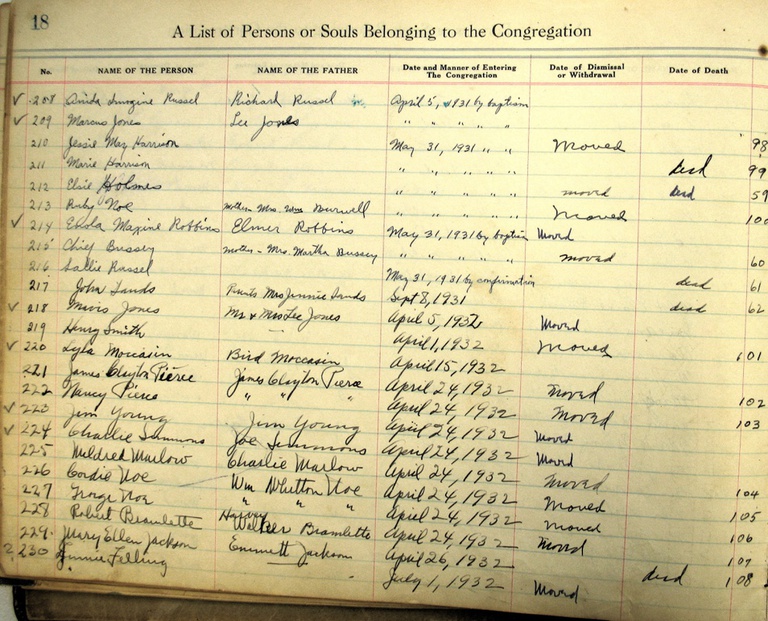 18
A List of Persons or Souls Belonging to the Congregation
No. NAME OF THE PERSON NAME OF THE FATHER Date and Manner of Entering The Congregation Date of Dismissal or Withdrawal Date of Death
✓ 208 Anida Imogine Russel Richard Russel April 5, 1931 by baptism
✓ 209 Marcus Jones Lee Jones " " " " "
210 Jessie May Harrison May 31, 1931 " " Moved 98
211 Marie Harrison " " " " " dead 99
212 Elsie Holmes " " " " " moved dead 59
213 Ruby Noe mother Mrs. Burwell " " " " " Moved 100
✓ 214 Enola Maxine Robbins Elmer Robbins May 31, 1931 by baptism Moved
215 Chief Bussey mother - Mrs. Martha Bussey " " " " " moved 60
216 Lallie Russel May 31, 1931 by confirmation dead 61
217 John Sands Parents Mrs Jennie Sands Sept 8, 1931 dead 62
✓ 218 Mavis Jones Mr & Mrs Lee Jones April 5, 1932 Moved
219 Henry Smith — April 1, 1932 Moved 101
✓ 220 Lyla Moccasin Bird Moccasin April 15, 1932
221 James Clayton Pierce James Clayton Pierce April 24, 1932 Moved 102
222 Nancy Pierce " " " April 24, 1932 Moved 103
✓ 223 Jim Young Jim Young April 24, 1932 Moved
✓ 224 Charlie Simmons Joe Simmons April 24, 1932 Moved
225 Mildred Marlow Charlie Marlow April 24, 1932 Moved 104
226 Cordie Noe Wm Whitton Noe April 24, 1932 Moved 105
227 George Noe " " " April 24, 1932 Moved 106
228 Robert Bramlette Harvey Walker Bramlette April 24, 1932 Moved 107
229 Mary Ellen Jackson Emmett Jackson April 26, 1932 dead 108
? 230 Jinnie Felling — July 1, 1932 Moved